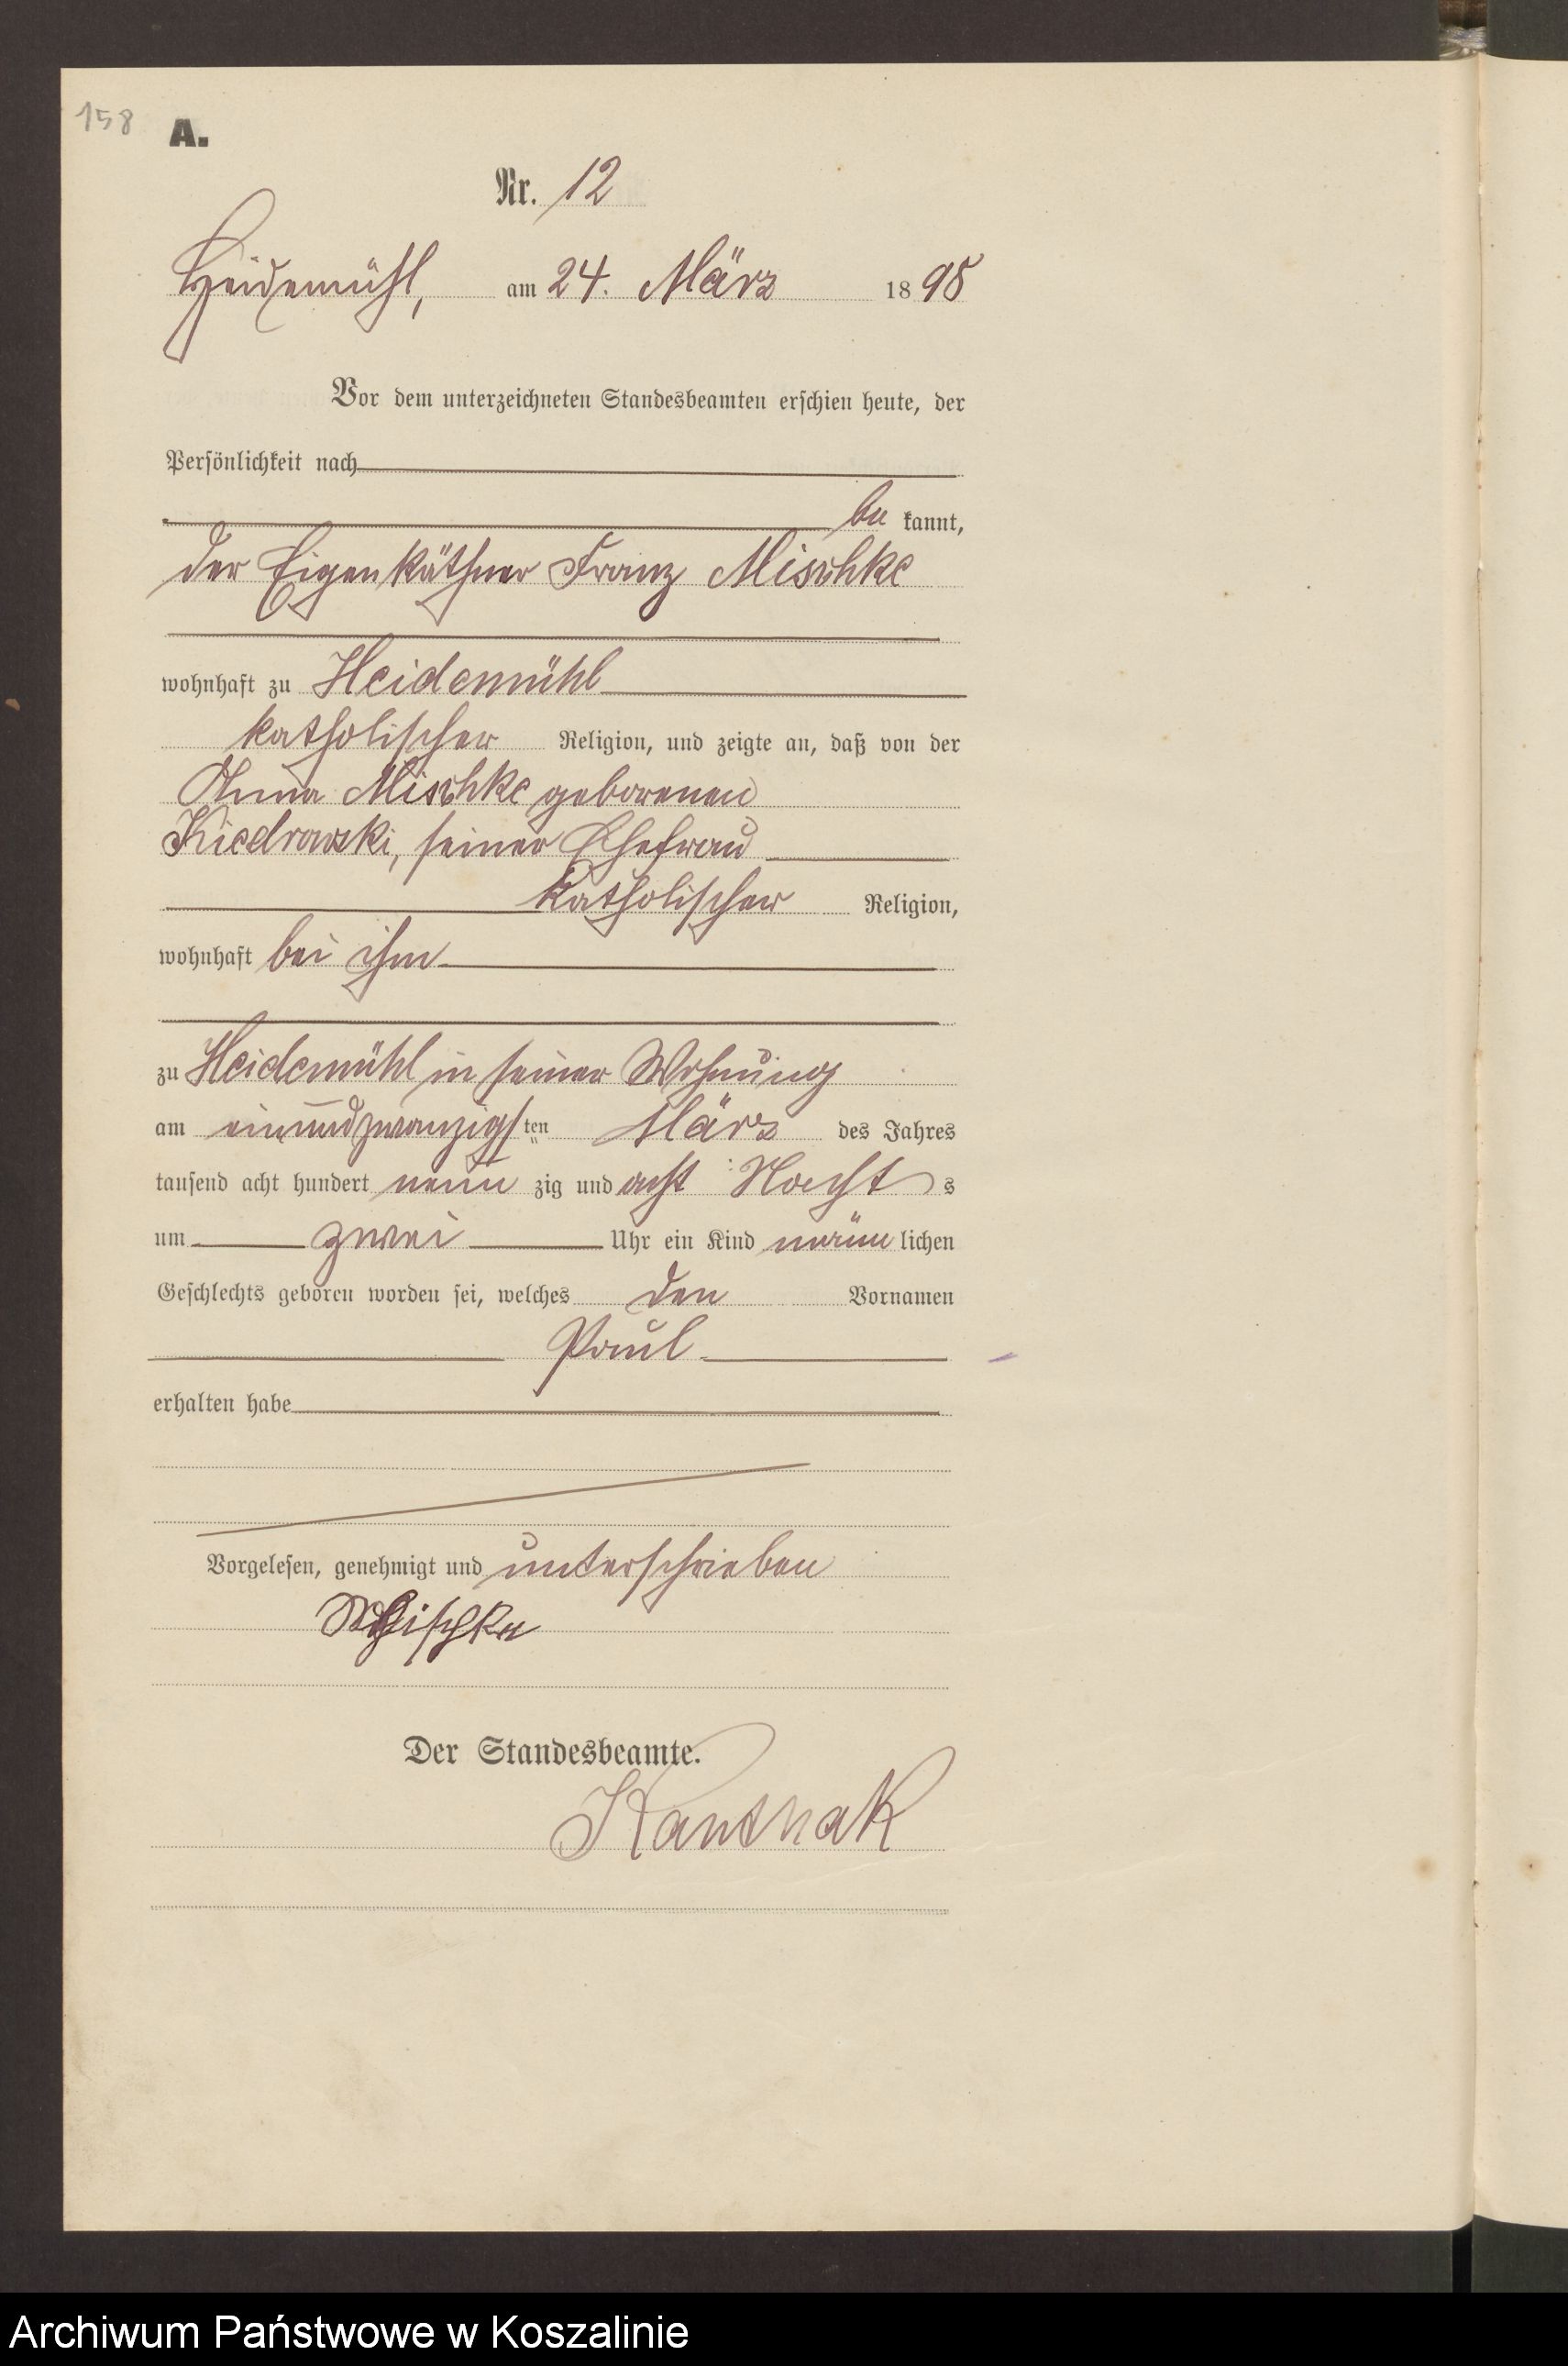 158
A.
Nr. 12
Heidemühl, am 24. März 1898
Vor dem unterzeichneten Standesbeamten erschien heute, der
Persönlichkeit nach
be kannt,
der Eigenkäthner Franz Mischke
wohnhaft zu Heidemühl
katholischer Religion, und zeigte an, daß von der
Anna Mischke geborenen
Kiedrowski, seiner Ehefrau
katholischer Religion,
wohnhaft bei ihm
zu Heidemühl in seiner Wohnung
am einundzwanzigsten März des Jahres
tausend acht hundert neun zig und acht Nachts
um zwei Uhr ein Kind männlichen
Geschlechts geboren worden sei, welches den Vornamen
Paul
erhalten habe
Vorgelesen, genehmigt und unterschrieben
Mischke
Der Standesbeamte.
Kanthak
Archiwum Państwowe w Koszalinie